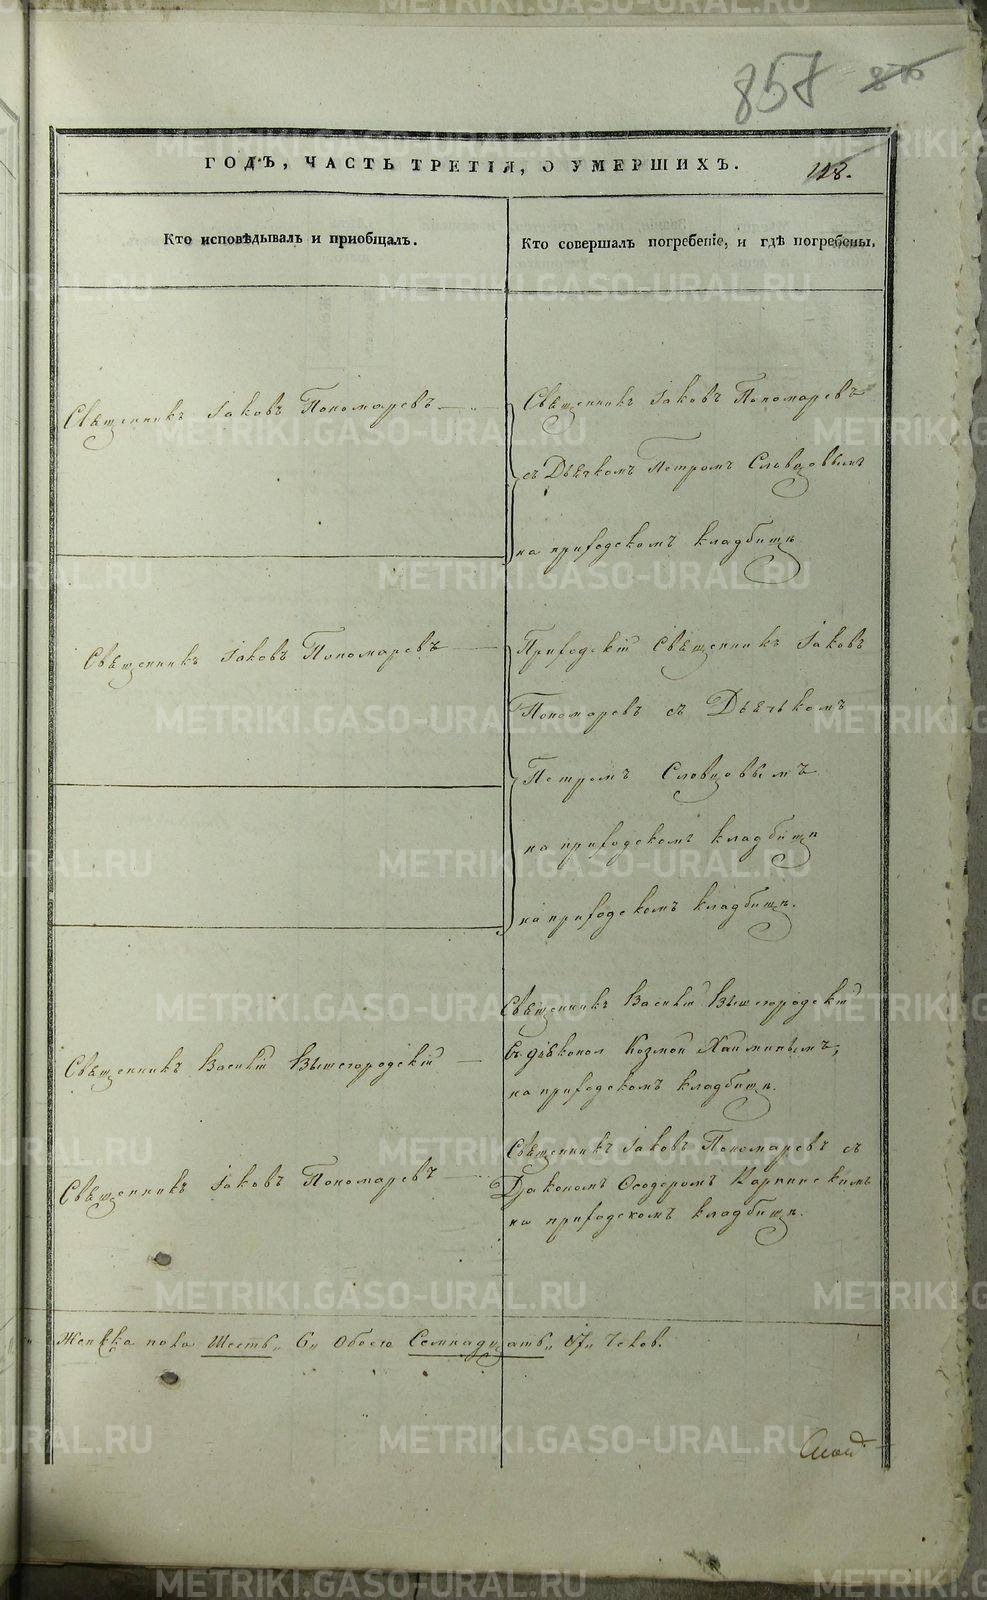 858 876
ГОДЪ, ЧАСТЬ ТРЕТІЯ, О УМЕРШИХЪ.
128.
Кто исповѣдывалъ и приобщалъ.
Кто совершалъ погребеніе, и гдѣ погребены.
Священникъ Іаковъ Пономаревъ
Священникъ Іаковъ Пономаревъ
съ Дьячкомъ Петромъ Словцовымъ
на приходскомъ кладбищѣ
Священникъ Іаковъ Пономаревъ
Приходскій Священникъ Іаковъ
Пономаревъ съ Дьячькомъ
Петромъ Словцовымъ
на приходскомъ кладбищѣ
на приходскомъ кладбищѣ.
Священникъ Василій Вышегородскій
Священникъ Василій Вышегородскій
Козмой
на приходскомъ кладбищѣ.
Священникъ Іаковъ Пономаревъ
Священникъ Іаковъ Пономаревъ съ
Діакономъ Ѳеодоромъ Карпинскимъ
на приходскомъ кладбищѣ.
Женска пола Шесть „ 6 „ Обоего Семнадцать „ 17 „ Человѣкъ.
METRIKI.GASO-URAL.RU